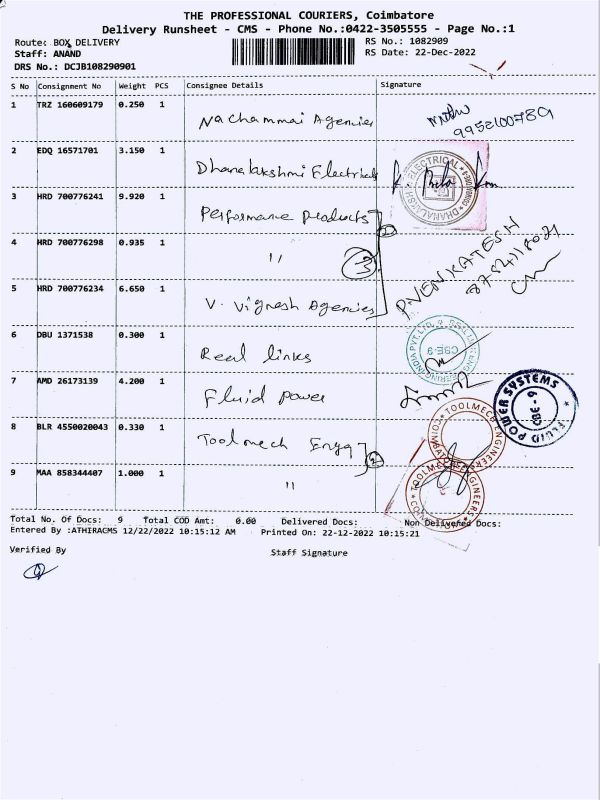 THE PROFESSIONAL COURIERS, Coimbatore
Delivery Runsheet - CMS - Phone No.:0422-3505555 - Page No.:1
Route: BOX DELIVERY
Staff: ANAND
DRS No.: DCJB108290901
RS No.: 1082909
RS Date: 22-Dec-2022
S No Consignment No Weight PCS Consignee Details Signature
1 TRZ 160609179 0.250 1 Nachammai Agencies
9952100789
2 EDQ 16571701 3.150 1 Dhanalakshmi Electricals
ELECTRICAL
3 HRD 700776241 9.920 1 Performance Products
4 HRD 700776298 0.935 1 " 3
P.VENKATESH
5 HRD 700776234 6.650 1 V. Vignesh Agencies
6 DBU 1371538 0.300 1 Real links
CBE-9
7 AMD 26173139 4.200 1 Fluid Power
FLUID POWER SYSTEMS
CBE-9
8 BLR 4550020043 0.330 1 Toolmech Engg 2
TOOLMECH ENGINEERS
9 MAA 858344407 1.000 1 "
TOOLMECH ENGINEERS
Total No. Of Docs: 9 Total COD Amt: 0.00 Delivered Docs: Non Delivered Docs:
Entered By :ATHIRACMS 12/22/2022 10:15:12 AM Printed On: 22-12-2022 10:15:21
Verified By Staff Signature